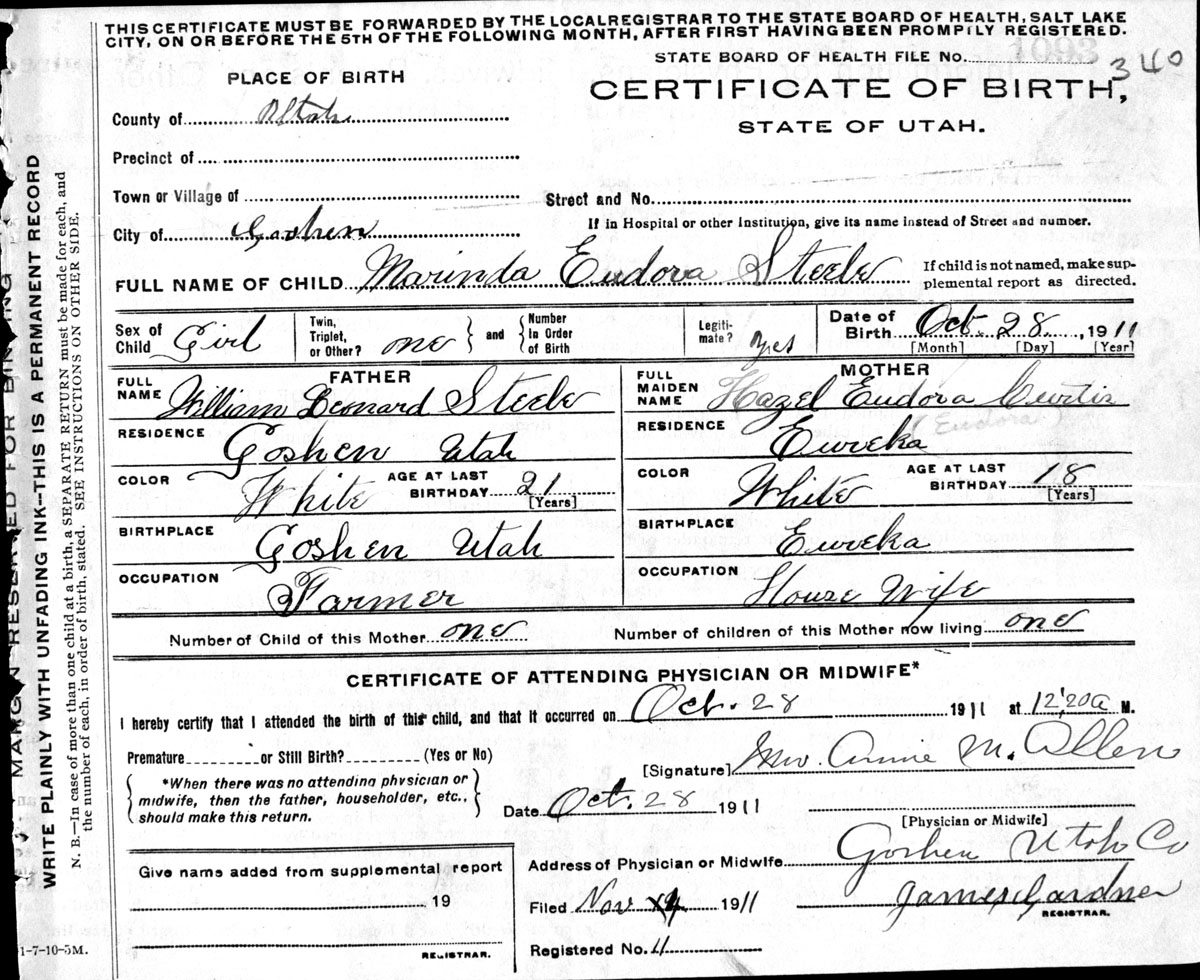 THIS CERTIFICATE MUST BE FORWARDED BY THE LOCALREGISTRAR TO THE STATE BOARD OF HEALTH, SALT LAKE
CITY, ON OR BEFORE THE 5TH OF THE FOLLOWING MONTH, AFTER FIRST HAVING BEEN PROMPILY REGISTERED.
STATE BOARD OF HEALTH FILE No. 1093 340
PLACE OF BIRTH
CERTIFICATE OF BIRTH,
STATE OF UTAH.
County of Utah
Precinct of
Town or Village of
Street and No.
If in Hospital or other Institution, give its name instead of Street and number.
City of Goshen
FULL NAME OF CHILD Marinda Eudora Steele
If child is not named, make sup-
plemental report as directed.
Sex of Child Girl
Twin, Triplet, or Other? one and Number In Order of Birth
Legiti- mate? yes
Date of Birth Oct. 28, 1911
[Month] [Day] [Year]
FATHER
FULL NAME William Leonard Steele
RESIDENCE Goshen Utah
COLOR White AGE AT LAST BIRTHDAY 21 [Years]
BIRTHPLACE Goshen Utah
OCCUPATION Farmer
MOTHER
FULL MAIDEN NAME Hazel Eudora Curtis
(Eudora)
RESIDENCE Eureka
COLOR White AGE AT LAST BIRTHDAY 18 [Years]
BIRTHPLACE Eureka
OCCUPATION House Wife
Number of Child of this Mother one Number of children of this Mother now living one
CERTIFICATE OF ATTENDING PHYSICIAN OR MIDWIFE*
I hereby certify that I attended the birth of this child, and that it occurred on Oct. 28 1911 at 12,20a M.
Premature or Still Birth? (Yes or No)
*When there was no attending physician or
midwife, then the father, householder, etc.,
should make this return.
[Signature] Annie M. Allen
Date Oct. 28 1911
[Physician or Midwife]
Address of Physician or Midwife Goshen Utah Co
Give name added from supplemental report
19
REGISTRAR.
Filed Nov 4 1911 James Gardner
REGISTRAR.
Registered No. 4
1-7-10-5M.
MARGIN RESERVED FOR BINDING
WRITE PLAINLY WITH UNFADING INK--THIS IS A PERMANENT RECORD
N. B.—In case of more than one child at a birth, a SEPARATE RETURN must be made for each, and
the number of each, in order of birth, stated. SEE INSTRUCTIONS ON OTHER SIDE.